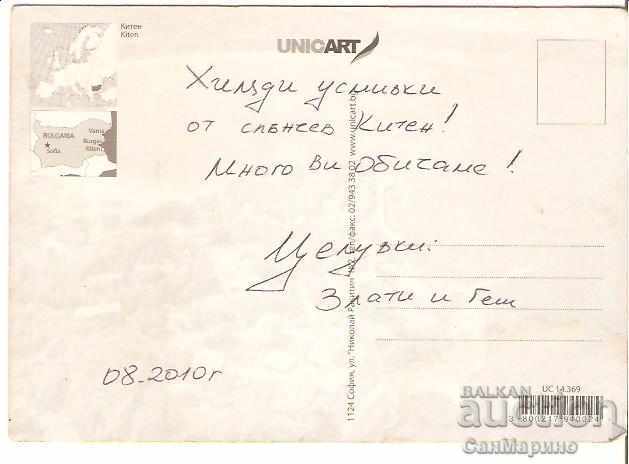 Китен
Kiten
UNICART
BULGARIA
Varna
Sofia
Burgas
Kiten
Хиляди усмивки
от слънчев Китен!
Много Ви обичаме!
Целувки:
Злати и Геш
08.2010г
1124 София, ул. "Николай Ракитин" №2, тел/факс: 02/943 38 02 www.unicart.bg
UC 14.369
3 800217 940024
BALKAN
auction
СанМарино